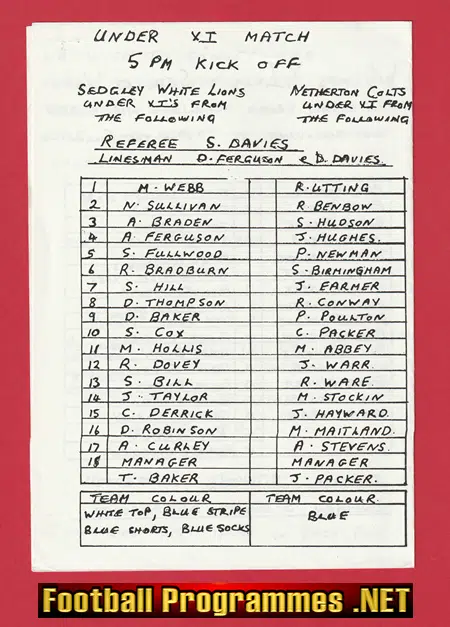 UNDER XI MATCH
5 PM KICK OFF
SEDGLEY WHITE LIONS
UNDER XI'S FROM
THE FOLLOWING
NETHERTON COLTS
UNDER XI FROM
THE FOLLOWING
REFEREE S. DAVIES
LINESMAN D. FERGUSON & D. DAVIES.
1 M. WEBB R. UTTING
2 N. SULLIVAN R BENBOW
3 A. BRADEN S. HUDSON
4 A. FERGUSON J. HUGHES.
5 S. FULLWOOD P. NEWMAN
6 R. BRADBURN S. BIRMINGHAM
7 S. HILL J. EARMER
8 D. THOMPSON R. CONWAY
9 D. BAKER P. POULTON
10 S. COX C. PACKER
11 M. HOLLIS M. ABBEY
12 R. DOVEY J. WARR.
13 S. BILL R. WARE.
14 J. TAYLOR M. STOCKIN
15 C. DERRICK J. HAYWARD.
16 D. ROBINSON M. MAITLAND.
17 A. CURLEY A. STEVENS.
18 MANAGER MANAGER
T. BAKER J. PACKER.
TEAM COLOUR TEAM COLOUR.
WHITE TOP, BLUE STRIPE
BLUE SHORTS, BLUE SOCKS
BLUE
Football Programmes .NET